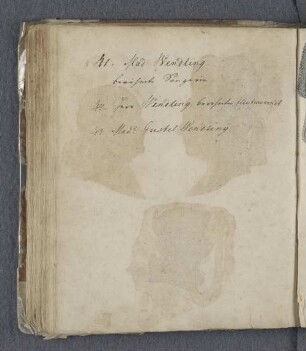 41. Mad. Wendling
berühmte Sängerin
42. Herr Wendling. berühmter
43 Mad. Gustel Wendling.